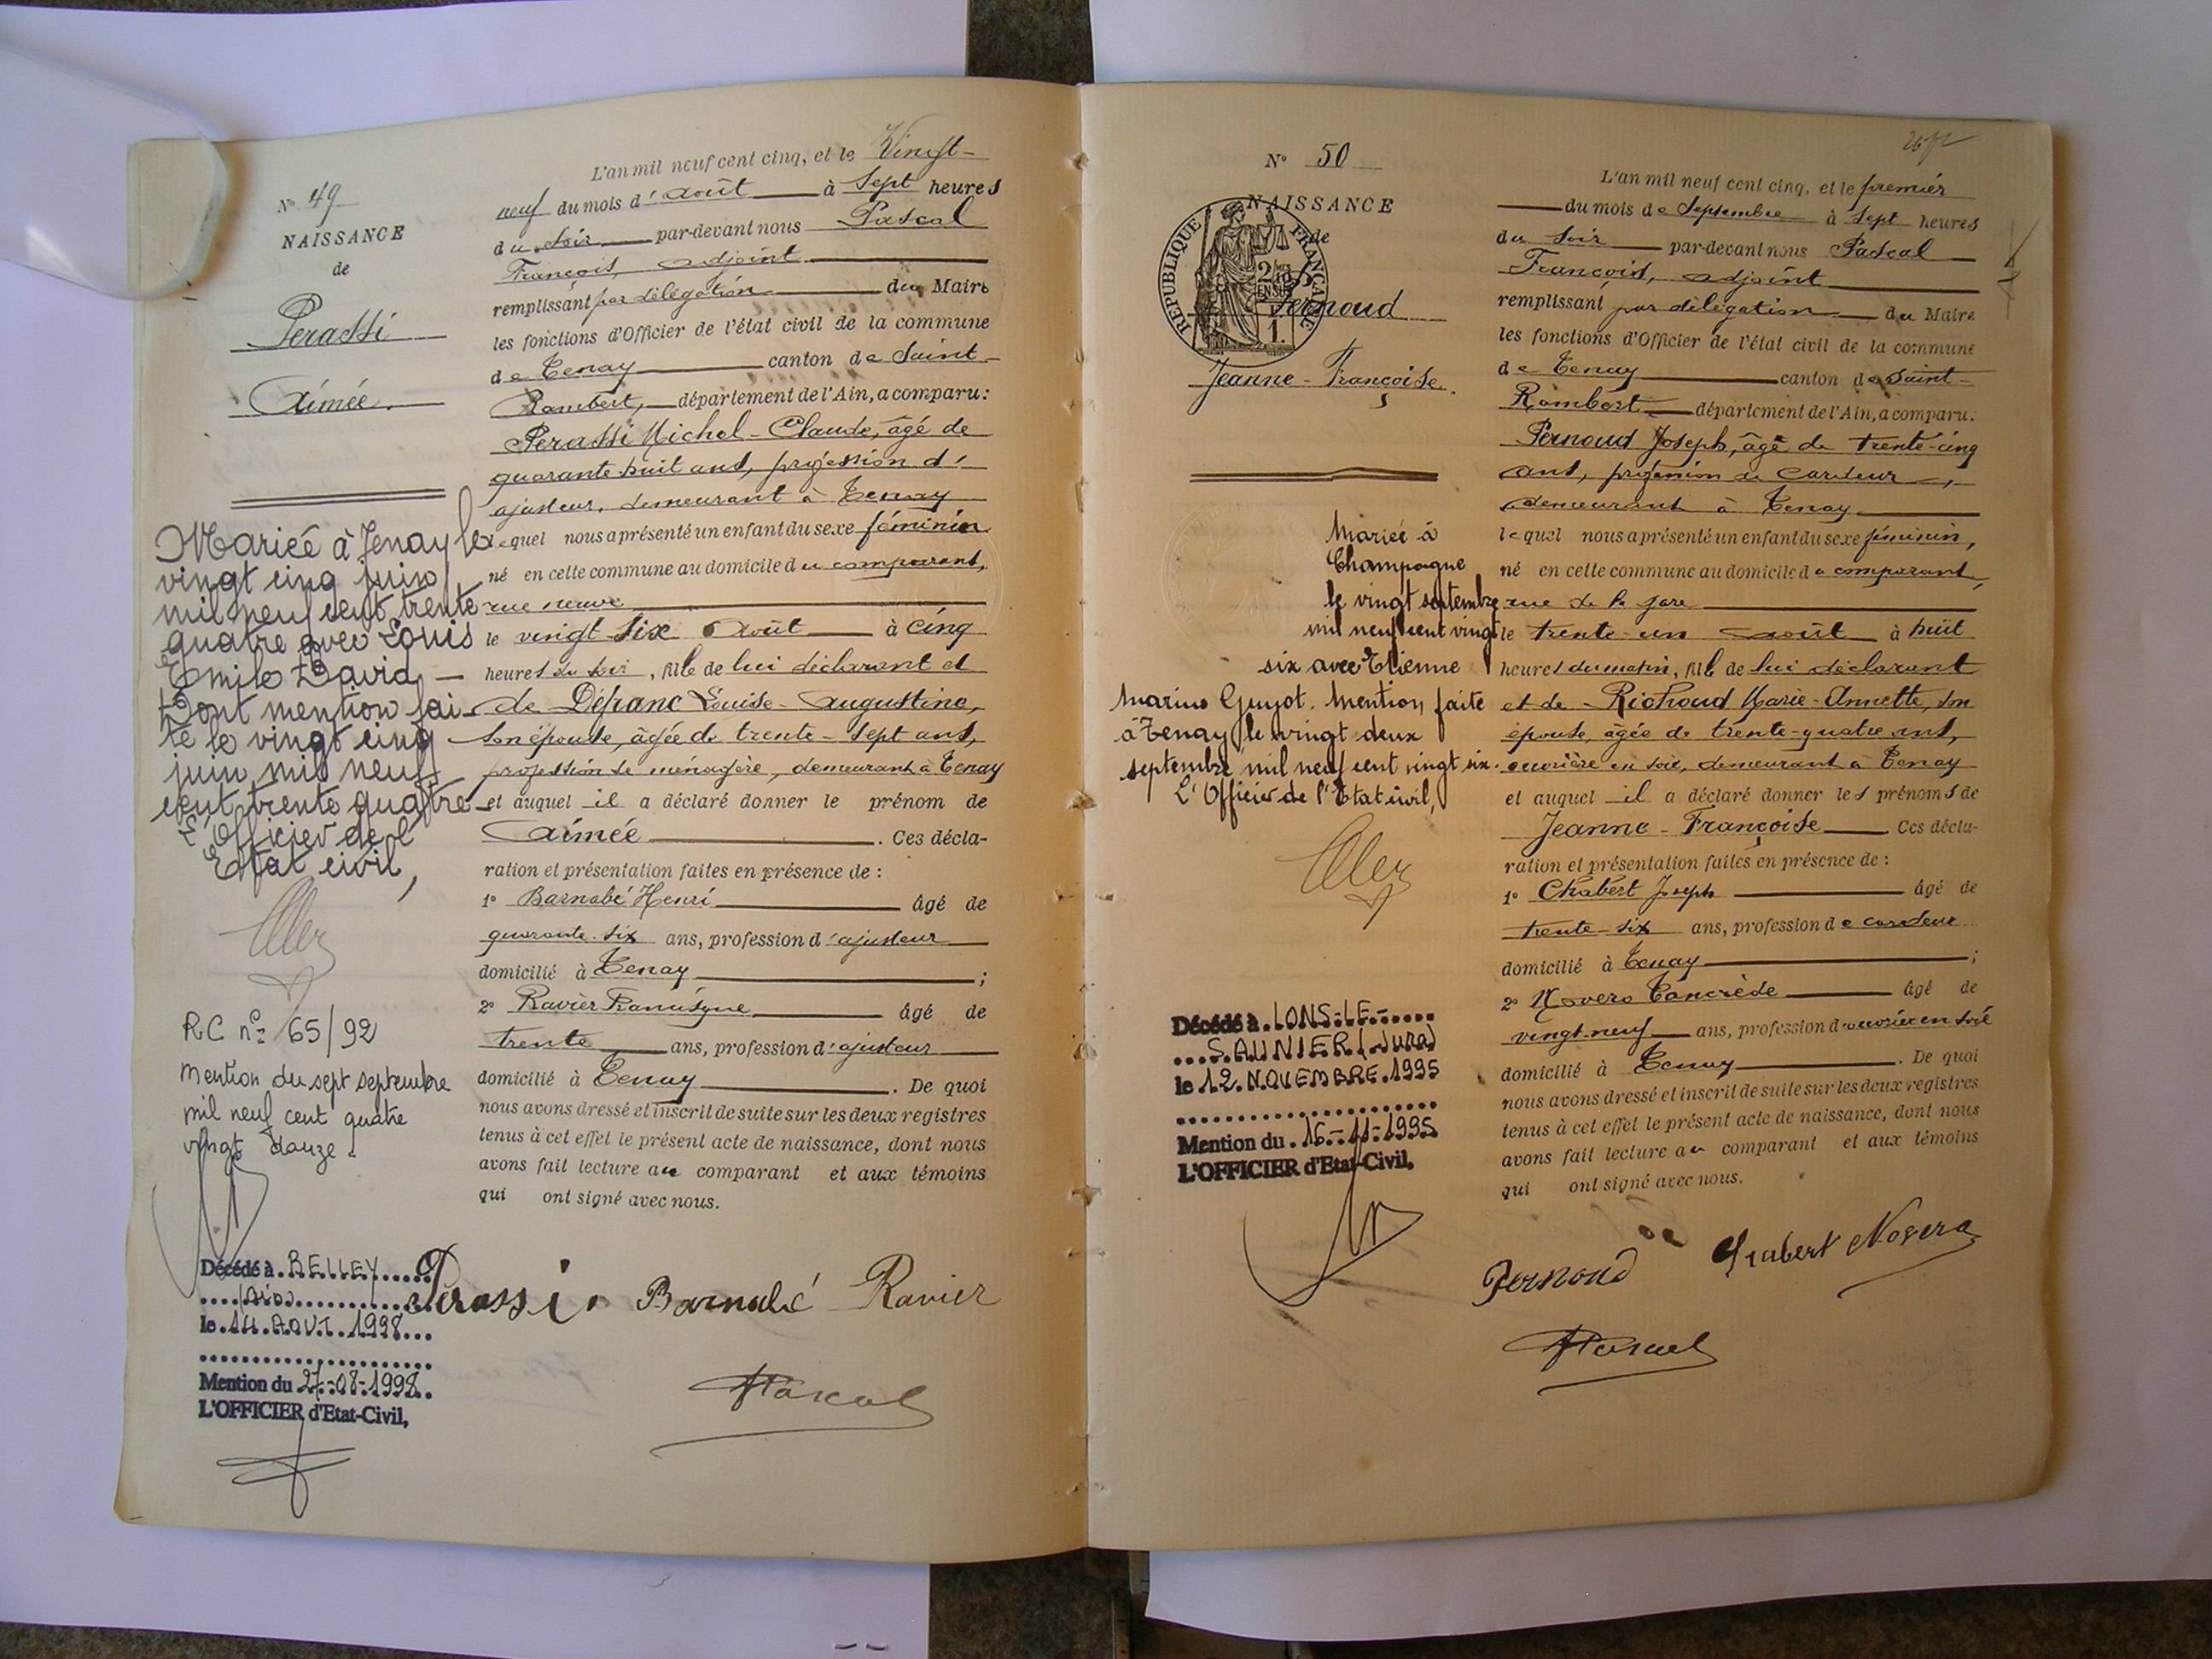 N° 49
NAISSANCE
de
Perassi
Aimée.
L'an mil neuf cent cinq, et le Vingt-
neuf du mois d'août à Sept heures
du soir par-devant nous Pascal
François, adjoint
remplissant par délégation du Maire
les fonctions d'Officier de l'état civil de la commune
de Tenay canton de Saint-
Rambert, département de l'Ain, a comparu:
Perassi Michel-Claude, âgé de
quarante-huit ans, profession d'
ajusteur, demeurant à Tenay
lequel nous a présenté un enfant du sexe féminin
né en cette commune au domicile du comparant,
rue neuve
le vingt six août à cinq
heures du soir, fille de lui déclarant et
de Défranc Louise-Augustine,
son épouse, âgée de trente-sept ans,
profession de ménagère, demeurant à Tenay
et auquel il a déclaré donner le prénom de
Aimée. Ces décla-
ration et présentation faites en présence de :
1° Barnabé Henri âgé de
quarante-six ans, profession d'ajusteur
domicilié à Tenay ;
2° Ravier âgé de
trente ans, profession d'ajusteur
domicilié à Tenay. De quoi
nous avons dressé et inscrit de suite sur les deux registres
tenus à cet effet le présent acte de naissance, dont nous
avons fait lecture au comparant et aux témoins
qui ont signé avec nous.
Perassi Barnabé Ravier
Pascal
Mariée à Tenay le
vingt cinq juin
mil neuf cent trente
quatre avec Louis
Emile David
Dont mention fai-
te le vingt cinq
juin mil neuf
cent trente quatre
L'Officier de l'
Etat civil,
RC n° 65/92
Mention du sept septembre
mil neuf cent quatre
vingt douze.
Décédé à BELLEY
(Ain)
le 14 AOUT 1998
Mention du 27-08-1998
L'OFFICIER d'Etat-Civil,
N° 50
NAISSANCE
de
REPUBLIQUE FRANCAISE
Pernoud
Jeanne-Françoise.
L'an mil neuf cent cinq, et le premier
du mois de Septembre à Sept heures
du soir par-devant nous Pascal
François, adjoint
remplissant par délégation du Maire
les fonctions d'Officier de l'état civil de la commune
de Tenay canton de Saint-
Rambert département de l'Ain, a comparu.
Pernoud Joseph, âgé de trente-cinq
ans, profession de cardeur,
demeurant à Tenay
lequel nous a présenté un enfant du sexe féminin,
né en cette commune au domicile du comparant,
rue de la gare
le trente-un août à huit
heures du matin, fille de lui déclarant
et de Richoud Marie-Annette, son
épouse, âgée de trente-quatre ans,
ouvrière en soie, demeurant à Tenay
et auquel il a déclaré donner les prénoms de
Jeanne-Françoise. Ces décla-
ration et présentation faites en présence de :
1° Chabert Joseph âgé de
trente-six ans, profession de cardeur
domicilié à Tenay ;
2° Novero Tancrède âgé de
vingt-neuf ans, profession d'ouvrier en soie
domicilié à Tenay. De quoi
nous avons dressé et inscrit de suite sur les deux registres
tenus à cet effet le présent acte de naissance, dont nous
avons fait lecture au comparant et aux témoins
qui ont signé avec nous.
Pernoud Chabert Novera
Pascal
Mariée à
Champagne
le vingt septembre
mil neuf cent vingt
six avec Etienne
Marius Guyot. Mention faite
à Tenay le vingt deux
septembre mil neuf cent vingt six.
L'Officier de l'Etat civil,
Décédé à LONS-LE-
SAUNIER (Jura)
le 12 NOVEMBRE 1995
Mention du 16-11-1995
L'OFFICIER d'Etat-Civil,